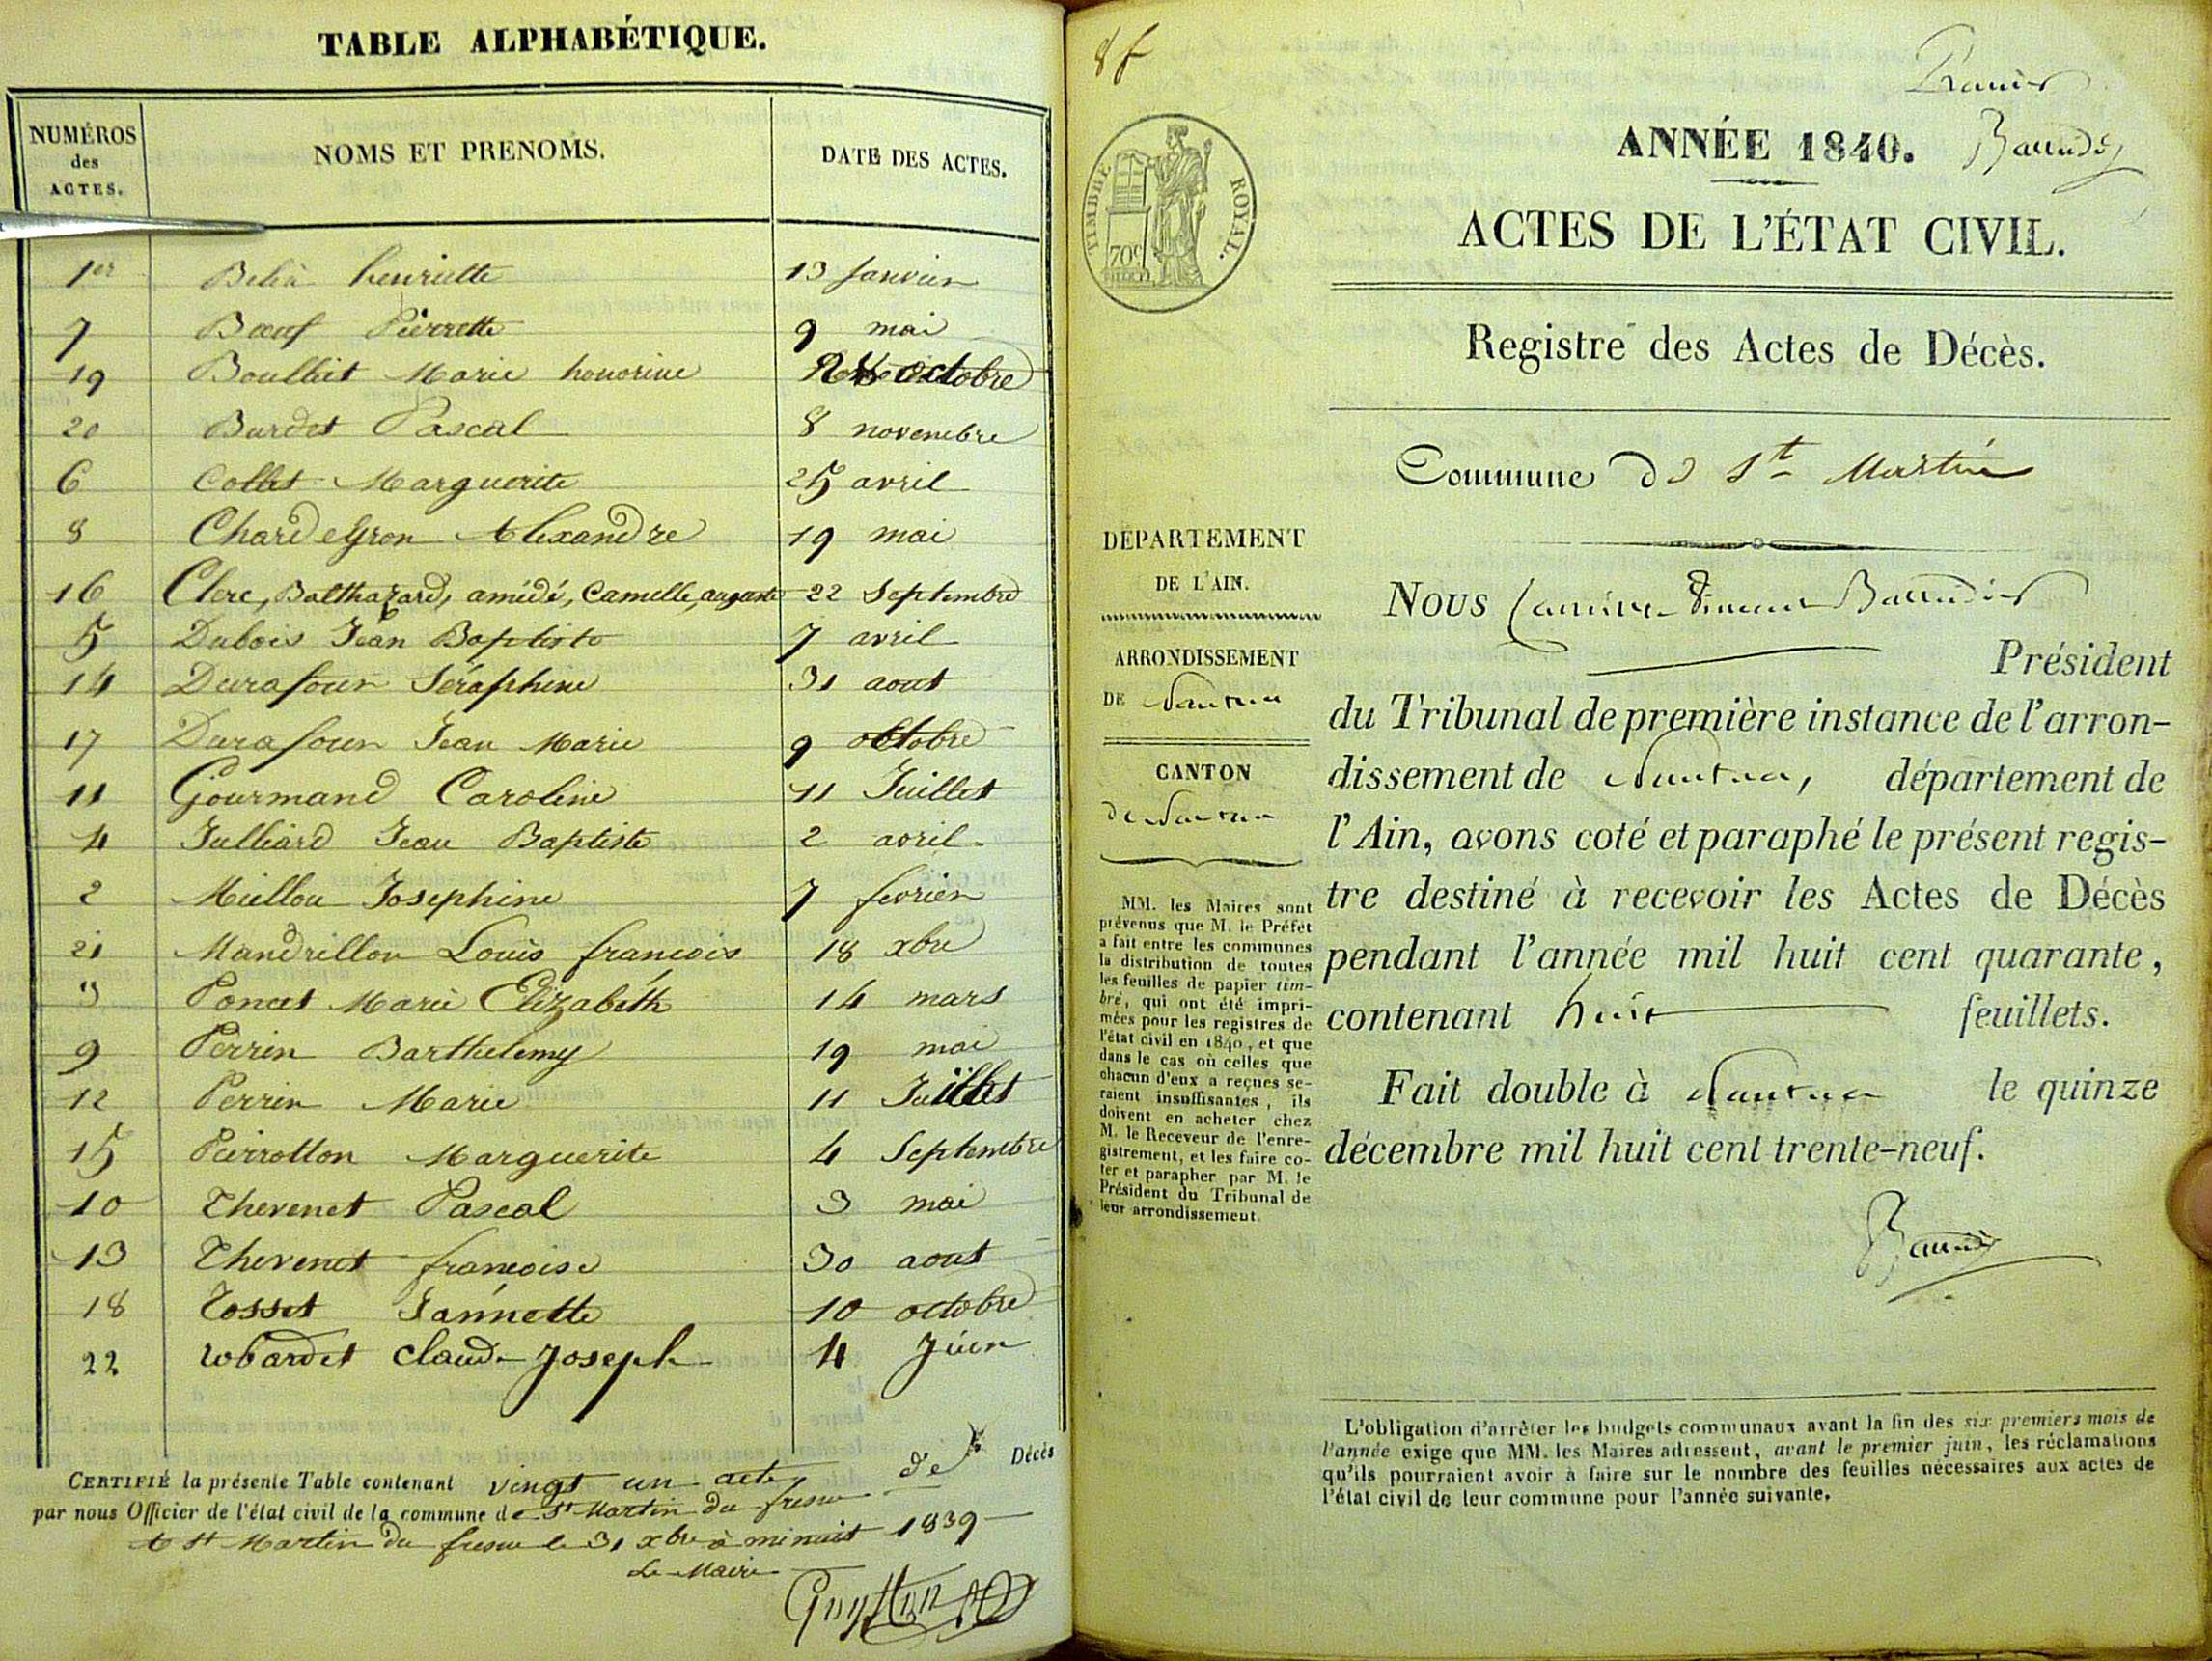 TABLE ALPHABÉTIQUE.
NUMÉROS des ACTES. NOMS ET PRENOMS. DATE DES ACTES.
1er henriette 13 Janvier
7 Bœuf Pierrette 9 mai
19 Marie honorine octobre
20 Burdet Pascal 8 novembre
6 Collet Marguerite 25 avril
8 Chardeyron Alexandre 19 mai
16 Clerc, Balthazard, amédé, Camelle, auguste 22 Septembre
5 Dubois Jean Baptiste 7 avril
14 Durafour Séraphine 31 aout
17 Durafour Jean Marie 9 octobre
11 Gourmand Caroline 11 Juillet
4 Julliard Jean Baptiste 2 avril
2 Josephine 7 fevrier
21 Mandrillon Louis francois 18 xbre
3 Poncet Marie Elizabéth 14 mars
9 Perrin Barthelemy 19 mai
12 Perrin Marie 11 Juillet
15 Pierrotton Marguerite 4 Septembre
10 Thevenet Pascal 3 mai
13 Thevenet francoise 30 aout
18 Tosset Jannette 10 octobre
22 claude Joseph 4 Juin
CERTIFIÉ la présente Table contenant vingt un acte de Décès
par nous Officier de l'état civil de la commune de St Martin du fresne
A St Martin du fresne le 31 xbre à minuit 1839
Le Maire
8 f
ANNÉE 1840.
TIMBRE ROYAL.
70c
ACTES DE L'ÉTAT CIVIL.
Registre des Actes de Décès.
Commune de St Martin
DÉPARTEMENT
DE L'AIN.
ARRONDISSEMENT
DE Nantua
CANTON
de Nantua
MM. les Maires sont
prévenus que M. le Préfet
a fait entre les communes
la distribution de toutes
les feuilles de papier tim-
bré, qui ont été impri-
mées pour les registres de
l'état civil en 1840, et que
dans le cas où celles que
chacun d'eux a reçues se-
raient insuffisantes, ils
doivent en acheter chez
M. le Receveur de l'enre-
gistrement, et les faire co-
ter et parapher par M. le
Président du Tribunal de
leur arrondissement.
Nous
Président
du Tribunal de première instance de l'arron-
dissement de Nantua, département de
l'Ain, avons coté et paraphé le présent regis-
tre destiné à recevoir les Actes de Décès
pendant l'année mil huit cent quarante,
contenant huit feuillets.
Fait double à Nantua le quinze
décembre mil huit cent trente-neuf.
L'obligation d'arrêter les budgets communaux avant la fin des six premiers mois de
l'année exige que MM. les Maires adressent, avant le premier juin, les réclamations
qu'ils pourraient avoir à faire sur le nombre des feuilles nécessaires aux actes de
l'état civil de leur commune pour l'année suivante.